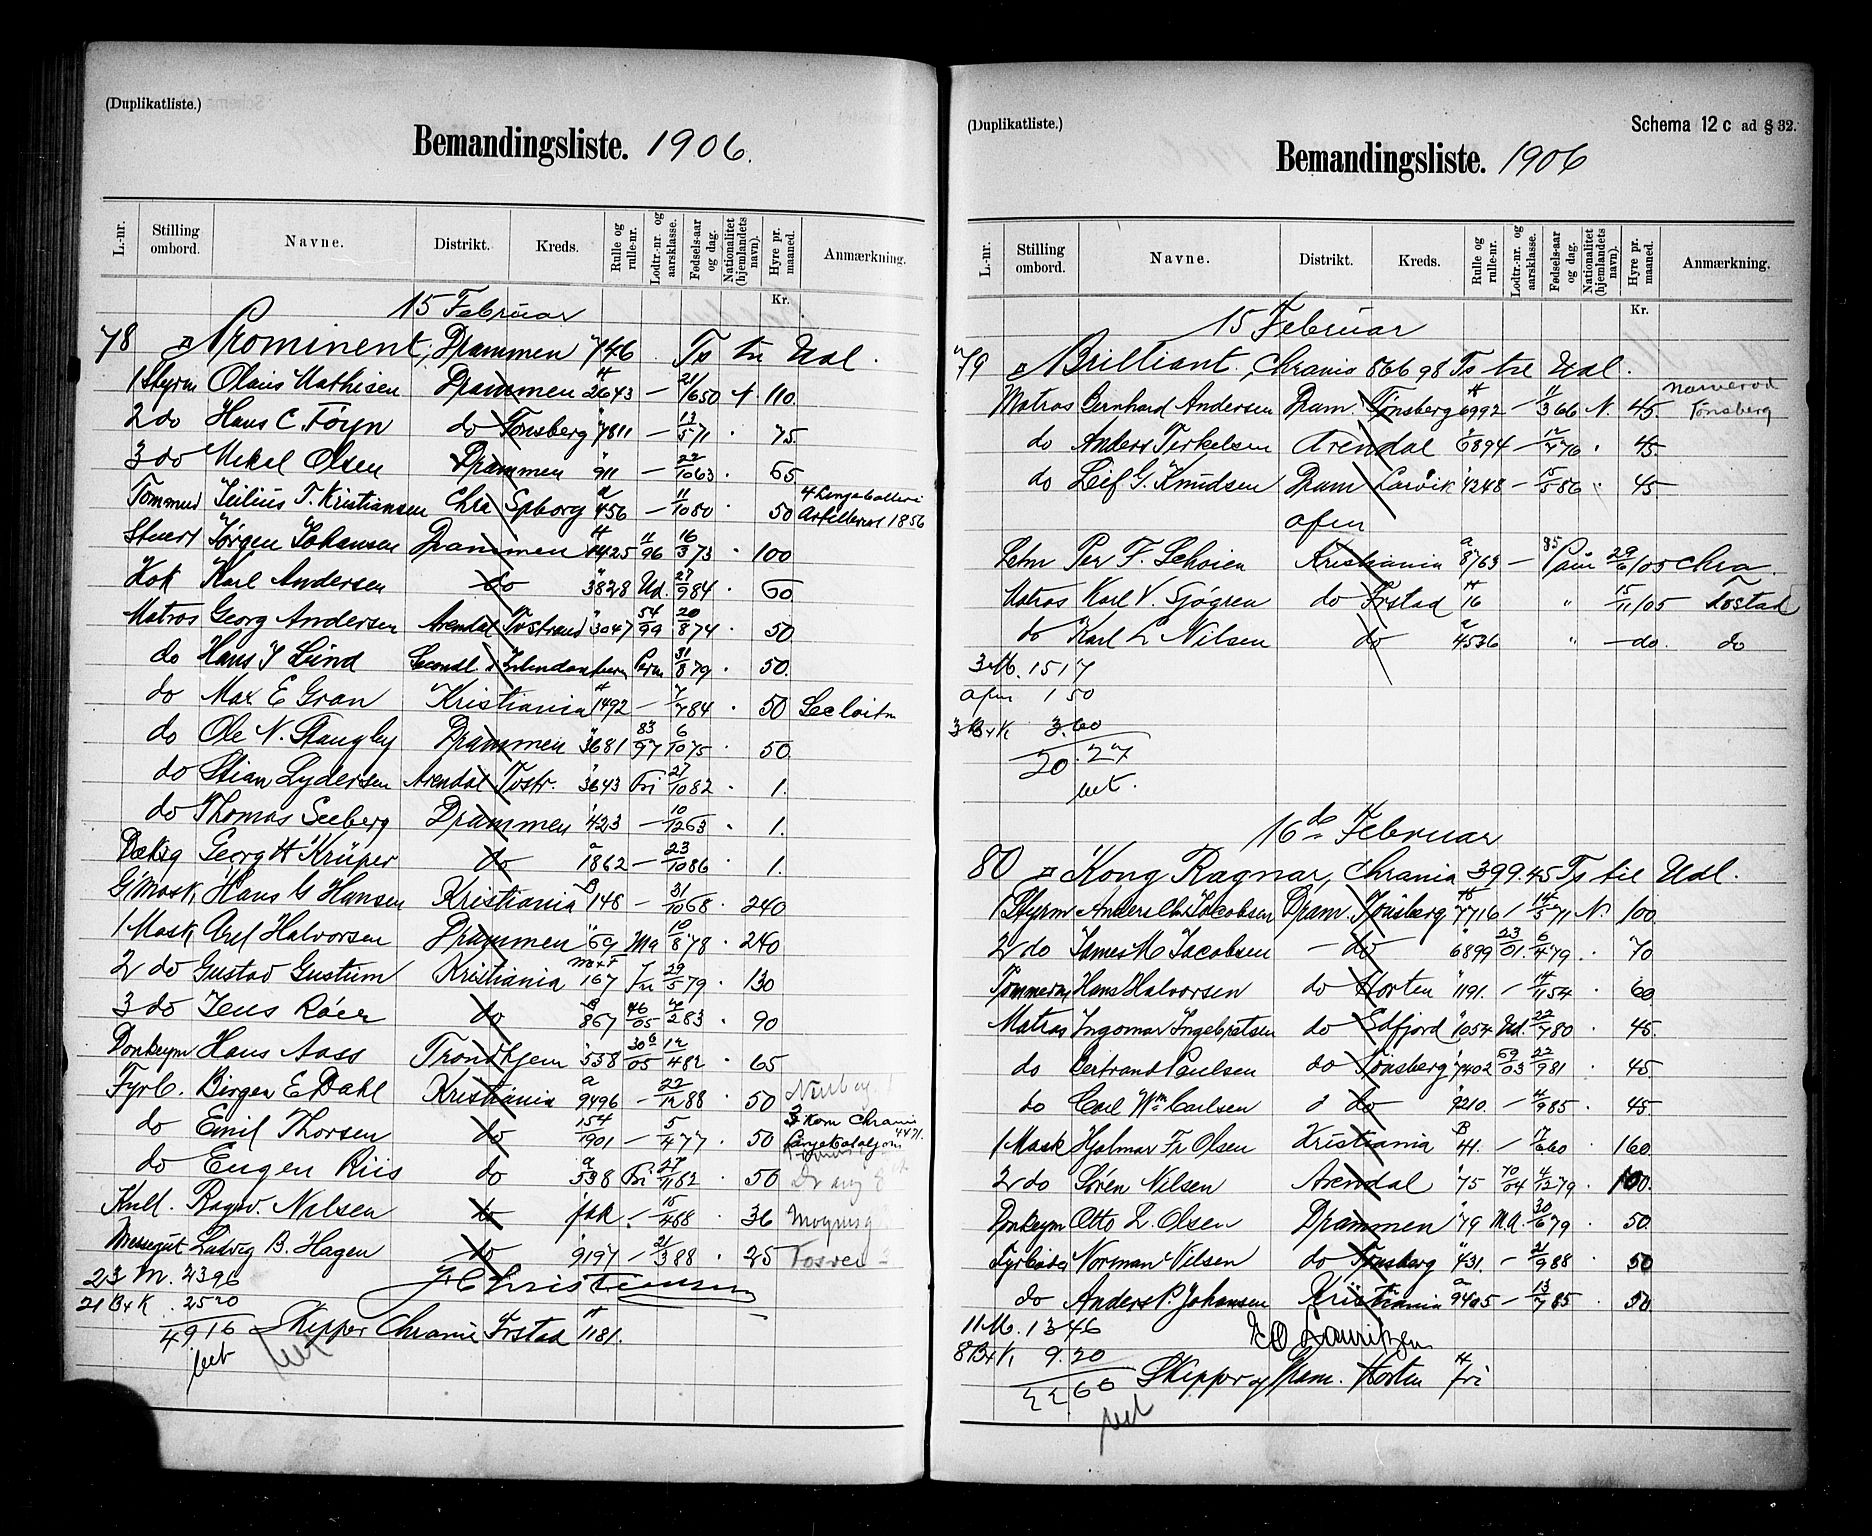 (Duplikatliste.)
Bemandingsliste. 1906.
L.-nr. Stilling ombord. Navne. Distrikt. Kreds. Rulle og rulle-nr. Lodtr.-nr. og aarsklasse. Fødsels-aar og dag. Nationalitet (hjemlandets navn). Hyre pr. maaned. Anmærkning.
Kr.
15 Februar
78 Prominent, Drammen 746 Ts til Udl.
1 Styrm Olaus Mathisen Drammen 2643 — 21/1650 N. 110.
2 do Hans C. Föyn do Tønsberg 7811 — 13/571 75.
3 do Mikal Olsen Drammen 911 — 22/1063 65
Tømmerm Julius T. Kristiansen Chra Spborg 456 — 11/1080 50 Artilleri 1856
Stuert Jørgen Johansen Drammen 1425 11/96 16/373 100
Kok Karl Andersen do 3828 Ud. 27/984 60
Matros Georg Andersen Arendal Tvstrand 3047 54/99 20/874 50
do Hans J Lund 31/879 50.
do Max E Gran Kristiania 1492 — 7/784 50
do Ole N. Stangby Drammen 3681 83/97 6/1075 50.
do Stian Lydersen Arendal Tvstr. 3643 Fri 27/1082 1.
do Thomas Seeberg Drammen 423 — 10/1263 1.
Dæksg Georg H Krüger do 1862 — 23/1086 1.
G Mask Hans G Hansen Kristiania 148 — 31/1068 240
1 Mask Axel Halvorsen Drammen 69 Ma 10/878 240
2 do Gustav Gustum Kristiania 167 Fri 29/579 130
3 do Jens Röer do 867 46/05 7/283 90
Donkeym Hans Aass Trondhjem 538 306/05 12/482 65
Fyrb. Birger E Dahl Kristiania 9496 — 22/1288 50
do Emil Thorsen do 154/1901 — 5/477 50 3 Kom Chrania 4471.
do Eugen Riis do 538 Fri 27/1182 50
Kull. Ragv. Nilsen do 15/488 36
Messegut Ludvig B. Hagen do 9197 — 21/388 25
23 M. 2396
J Christensen
21 B+K 2520
4916 Skipper Chrania Frstad 1181.
bet

(Duplikatliste.)
Schema 12 c ad § 32.
Bemandingsliste. 1906
L.-nr. Stilling ombord. Navne. Distrikt. Kreds. Rulle og rulle-nr. Lodtr.-nr. og aarsklasse. Fødsels-aar og dag. Nationalitet (hjemlandets navn). Hyre pr. maaned. Anmærkning.
Kr.
15 Februar
79 Brilliant, Chrania 866 98 Ts til Udl.
Matros Bernhard Andersen Dram. Tønsberg 6992 — 11/366 N. 45. Tønsberg
do Anders Terkelsen Arendal 6894 — 12/776 45.
do Leif G. Knudsen Dram Larvik 4248 — 15/586 45.
afm
Per F. Schoien Kristiania 8763 — 85 29/6/05 Chra.
Matros Karl V. Sjögren do Frstad 16 15/11/05 Fostad
do Karl L Nilsen do 4536 — do. do
3 M. 1517
afm 1 50
3 B+K 3.60
20.27
bet.
16de Februar
80 Kong Ragnar, Chrania 399.45 Ts til Udl.
1 Styrm Anders Chr Jacobsen Dram. Tønsberg 7716 — 14/571 N. 100
2 do James M Jacobsen — do 6899 23/01. 6/479 70
Tømmerm Hans Halvorsen do Horten 1191. — 14/1154 60
Matros Ingomar Ingebretsen do Edfjord 1054 Ud. 22/780 45
do Bertrand Paulsen do Tønsberg 7402 59/03 22/981 45.
do Carl Wm Carlsen do 9210. — 11/985 45
1 Mask Hjalmar Fr Olsen Kristiania 41. — 17/660 160
2 do Søren Nilsen Arendal 75 70/04 4/1279 100.
Donkeym Otto L. Olsen Drammen 79 Ma. 30/679 50.
Fyrbøder Norman Nilsen do Tønsberg 431. — 21/988 50
do Anders P. Johansen Kristiania 9405 — 13/785 50
11 M. 1346
E O Lauritzen
8 B+K 9.20
2266 Skipper og Dram. Horten fri
bet